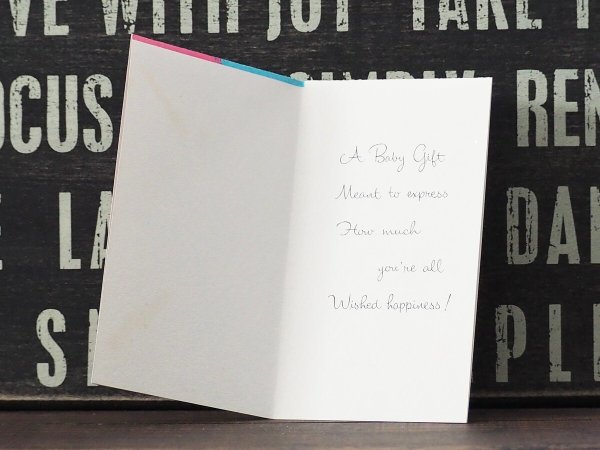 VE WITH JOY TAKE T
OCUS SIMPLY REN
LA DAN
S PLE
A Baby Gift
Meant to express
How much
you're all
Wished happiness!